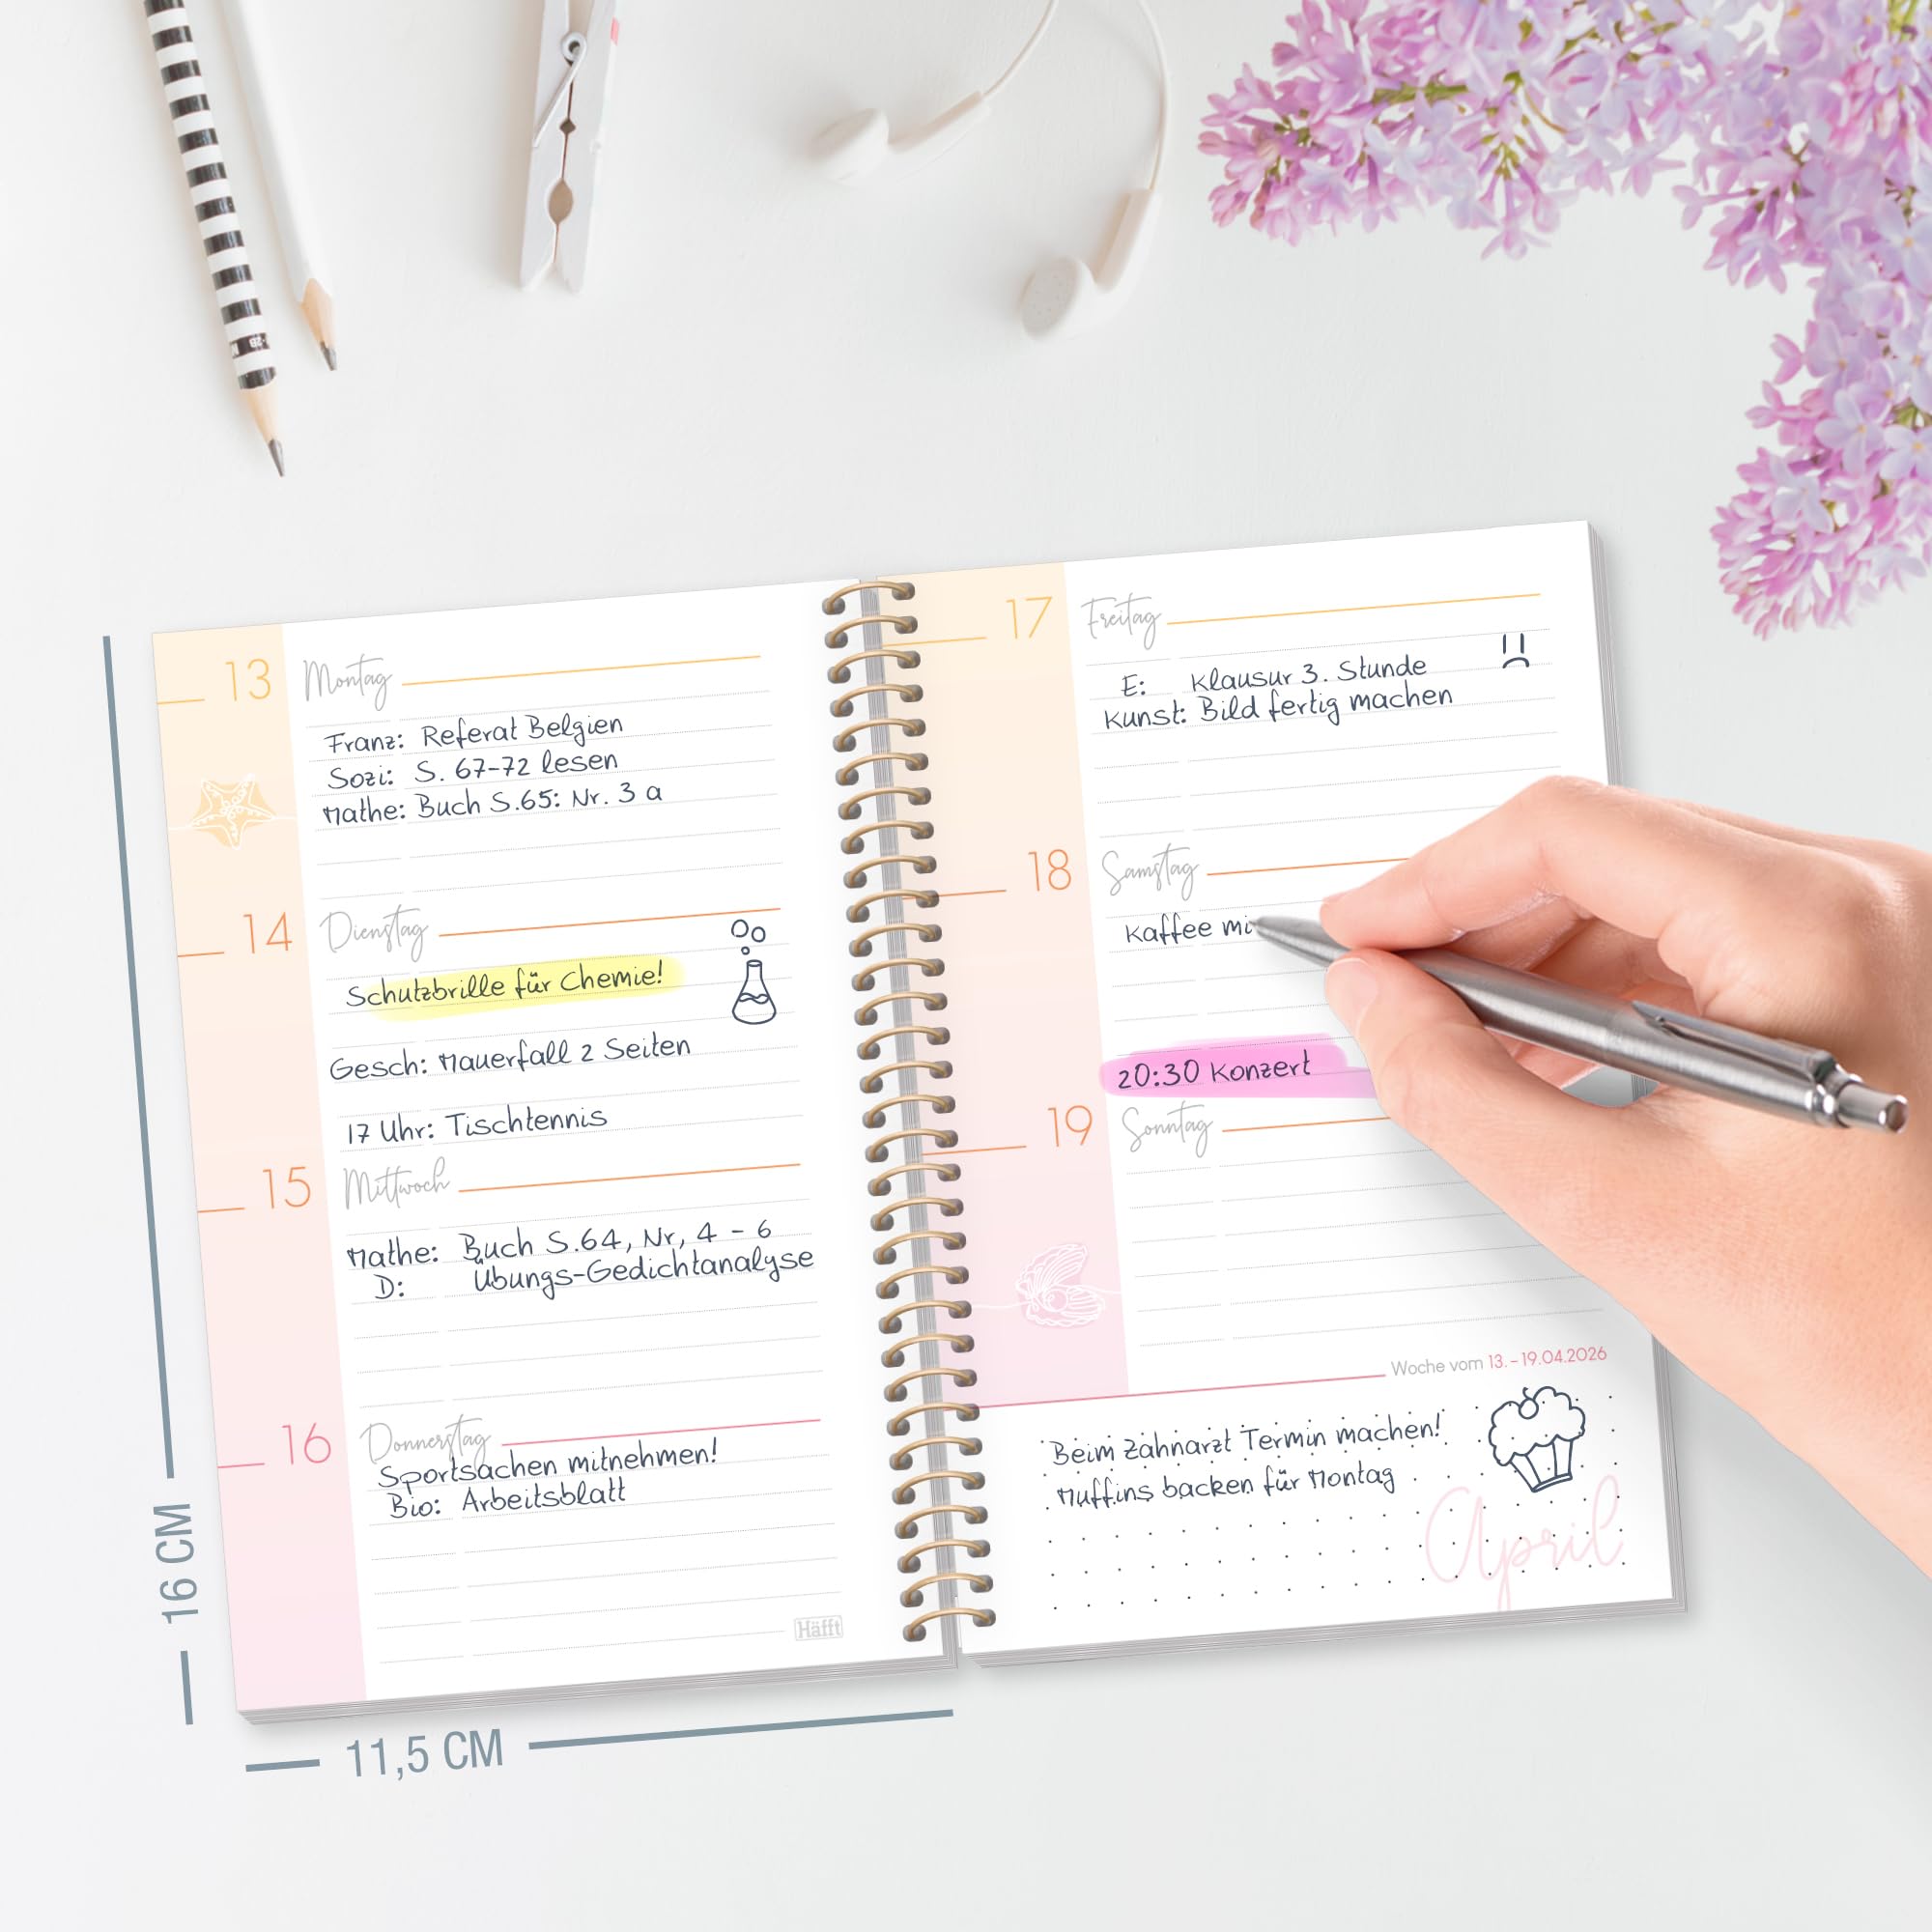 13 Montag
Franz: Referat Belgien
Sozi: S. 67-72 lesen
Mathe: Buch S.65: Nr. 3 a
14 Dienstag
Schutzbrille für Chemie!
Gesch: Mauerfall 2 Seiten
17 Uhr: Tischtennis
15 Mittwoch
Mathe: Buch S.64, Nr, 4 - 6
D: Übungs-Gedichtanalyse
16 Donnerstag
Sportsachen mitnehmen!
Bio: Arbeitsblatt
Häfft
17 Freitag
E: Klausur 3. Stunde
Kunst: Bild fertig machen
18 Samstag
Kaffee mi
20:30 Konzert
19 Sonntag
Woche vom 13. – 19.04.2026
Beim Zahnarzt Termin machen!
Muffins backen für Montag
April
16 CM
11,5 CM